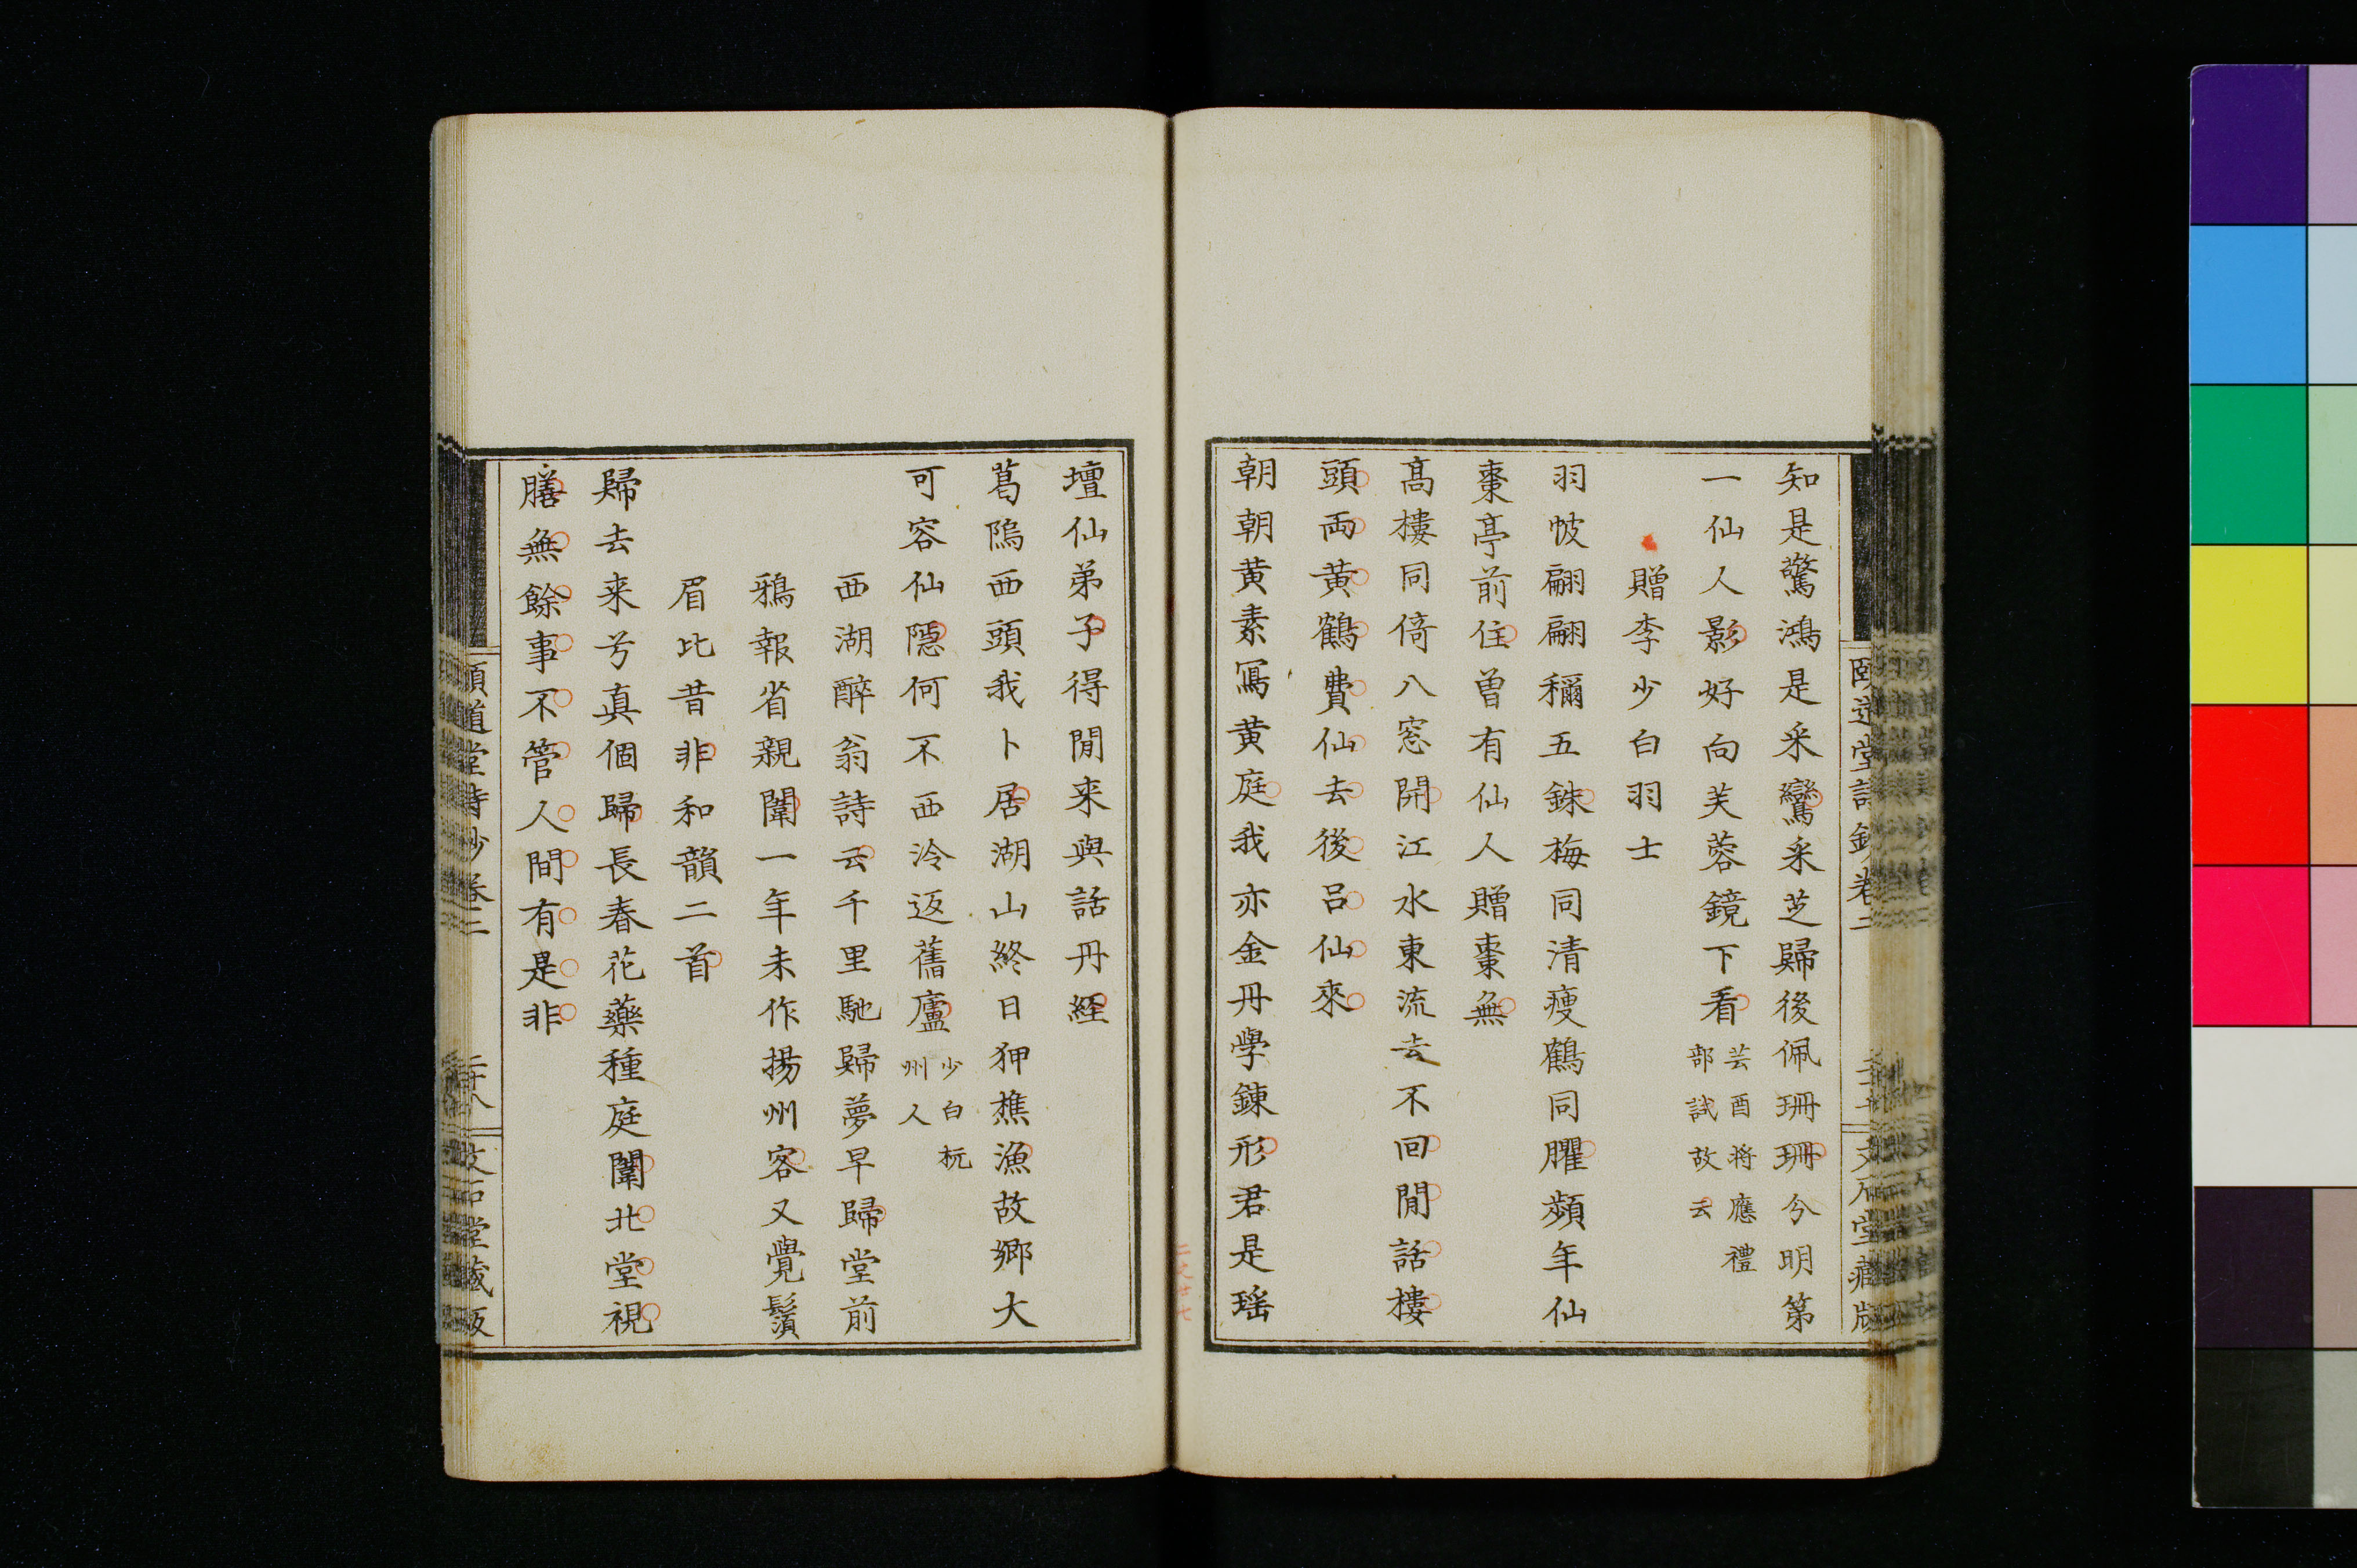 知是驚鴻是采鸞采芝歸後佩珊珊分明第
一仙人影好向芙蓉鏡下看芸酉將應禮
部試故云
贈李少白羽士
羽帔翩翩稱五銖梅同清瘦鶴同臞蘋年仙
棗亭前住曾有仙人贈棗無
高樓同倚八窓開江水東流去不回閒話樓
頭兩黃鶴費仙去後呂仙來
朝朝黃素寫黃庭我亦金丹學鍊形君是瑶
壇仙弟子得閒来與話丹經
葛隖西頭我卜居湖山終日狎樵漁故鄉大
可容仙隱何不西泠返舊廬少白杭
州人
西湖醉翁詩云千里馳歸夢早歸堂前
鴉報省親闈一年未作揚州客又覺鬚
眉比昔非和韻二首
歸去来兮真個歸長春花藥種庭闈北堂視
膳無餘事不管人間有是非
頤道堂詩鈔卷二
二十八